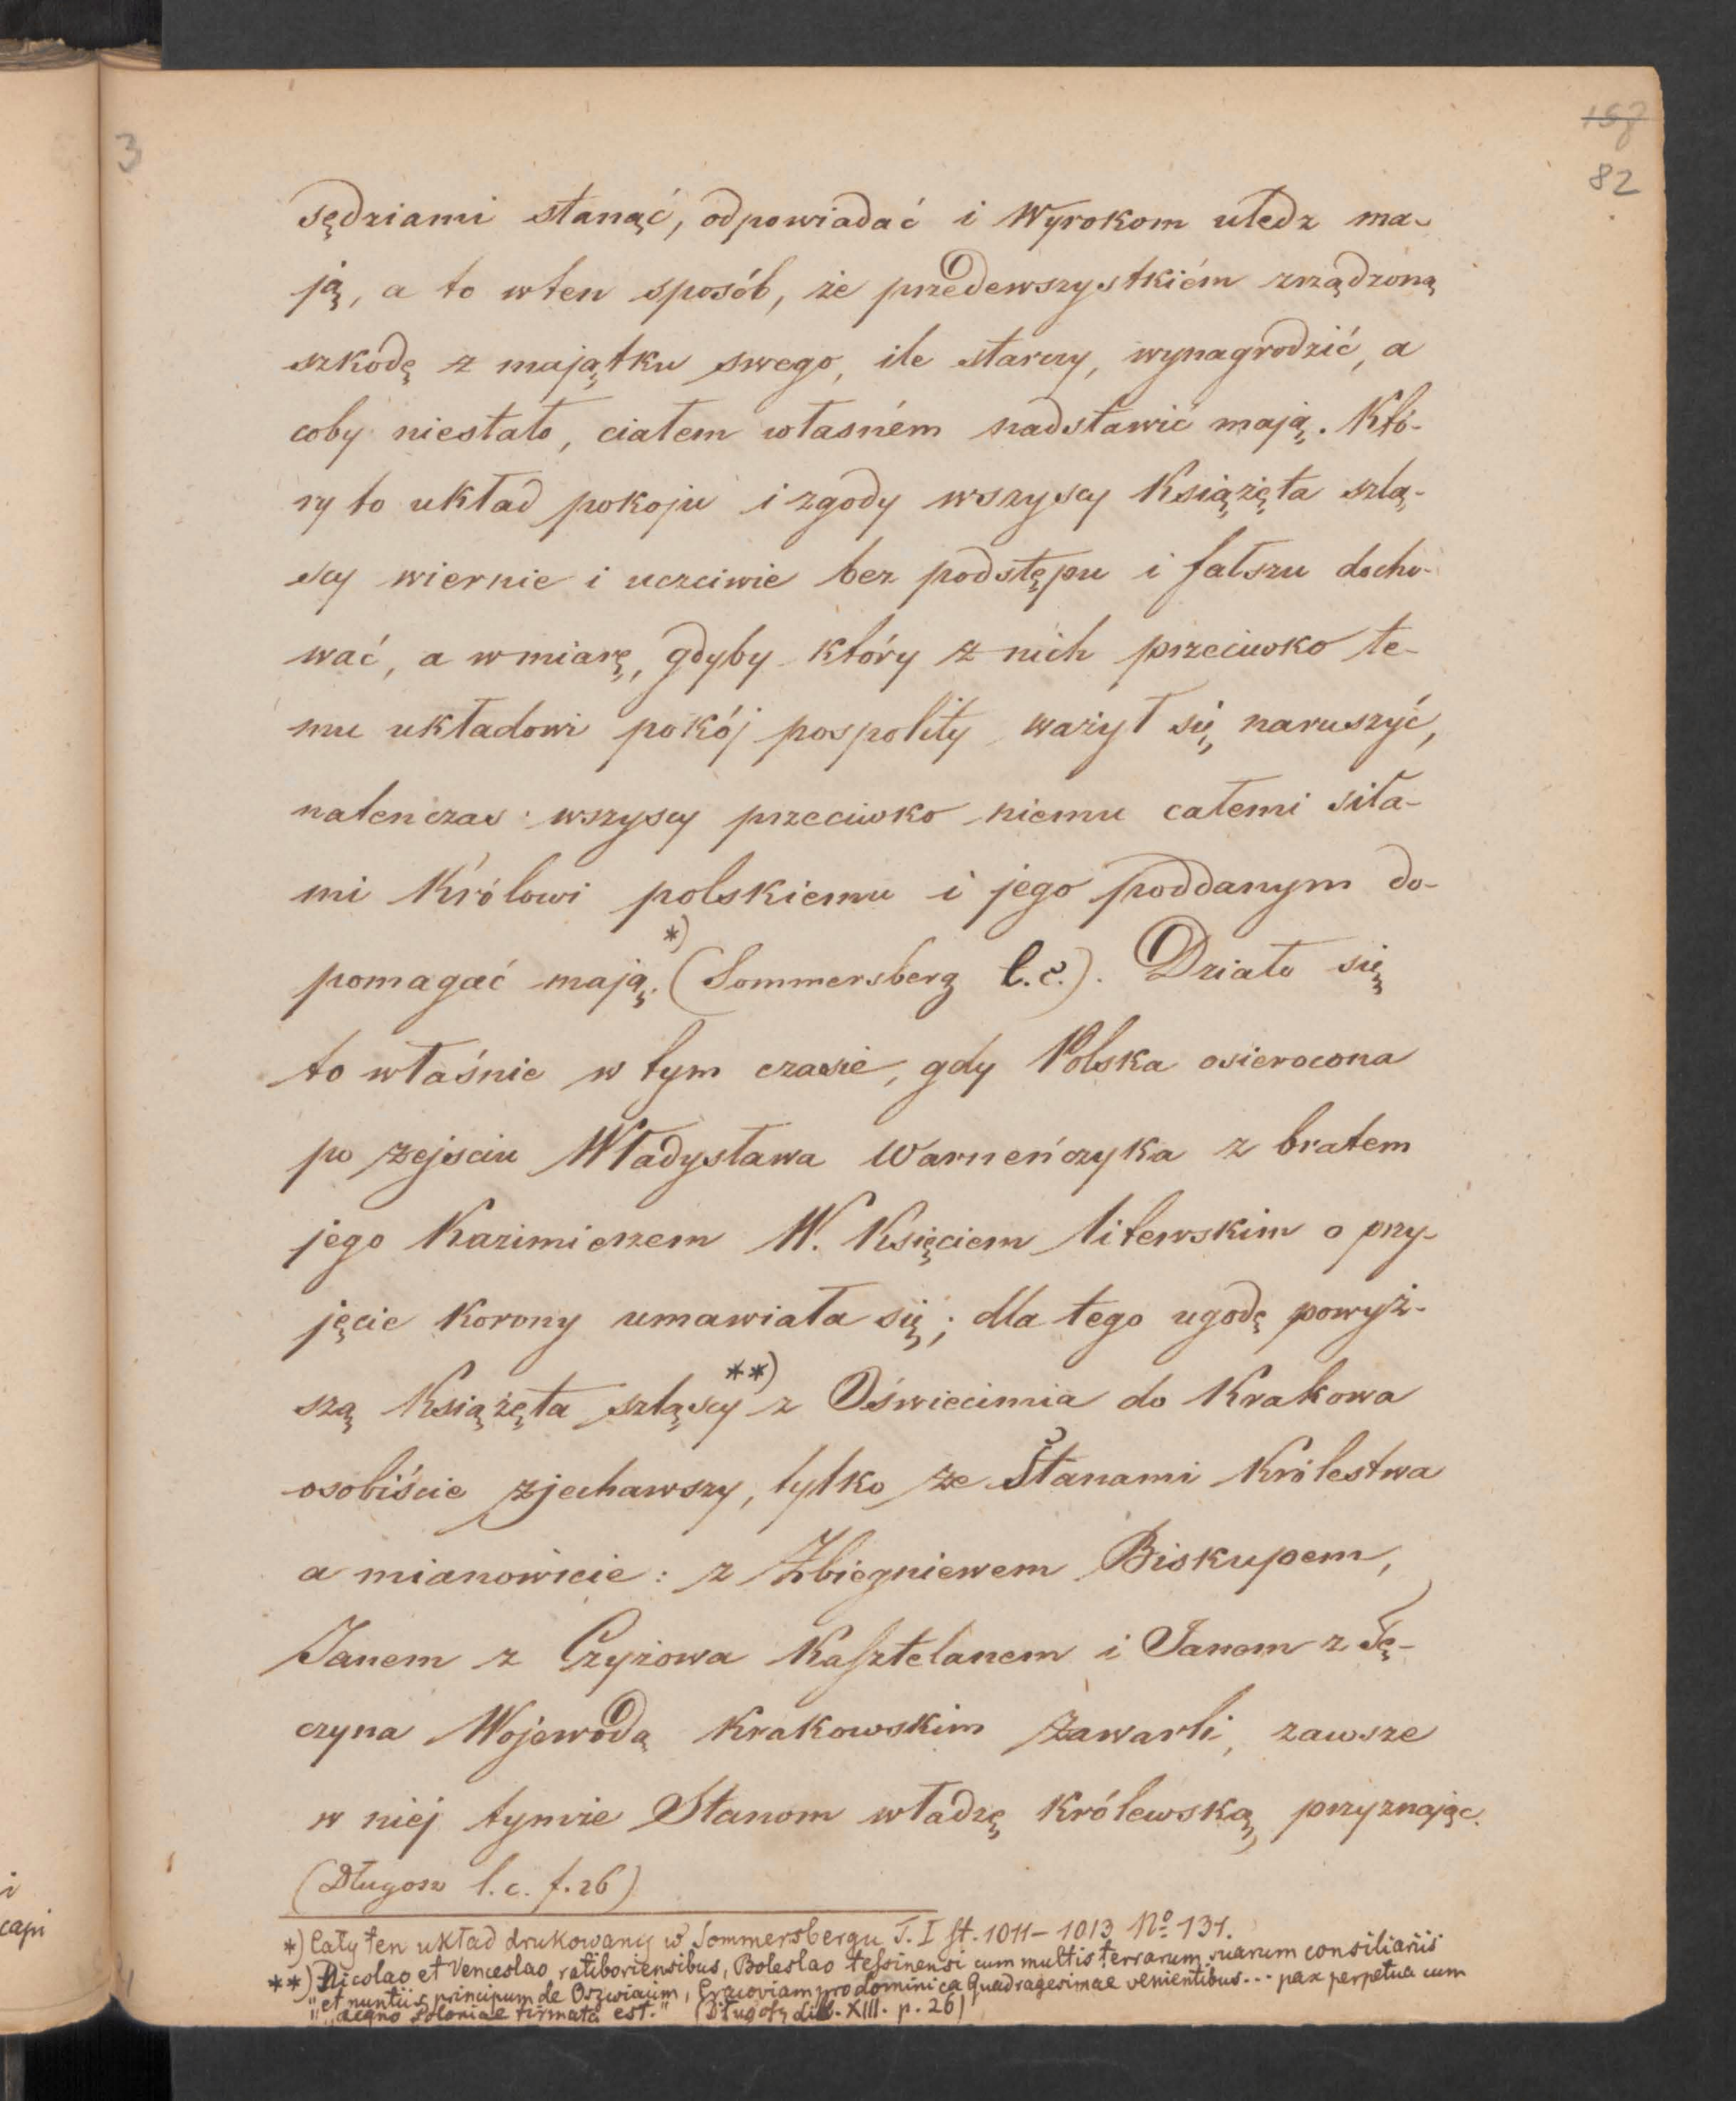 3
158
82
sędziami stanąć, odpowiadać i Wyrokom uledz ma-
ją, a to wten sposób, że przedewszystkiém zrządzoną
szkodę z majątku swego, ile starczy, wynagrodzić, a
coby niestało, ciałem własném nadstawić mają. Któ-
ry to układ pokoju i zgody wszyscy Książęta szlą-
scy wiernie i uczciwie bez podstępu i fałszu docho-
wać, a wmiarę, gdyby który z nich przeciwko te-
mu układowi pokój pospolity ważył się naruszyć,
natenczas wszyscy przeciwko niemu całemi siła-
mi Królowi polskiemu i jego poddanym do-
pomagać mają. *) (Sommersberg l.c.). Działo się
to właśnie w tym czasie, gdy Polska osierocona
po zejściu Władysława Warneńczyka z bratem
jego Kazimierzem W. Księciem litewskim o przy-
jęcie Korony umawiała się; dla tego ugodę powyż-
szą Książęta szląscy **) z Oświecimia do Krakowa
osobiście zjechawszy, tylko ze Stanami Królestwa
a mianowicie: z Zbiegniewem Biskupem,
Janem z Czyżowa Kasztelanem i Janem z Tę-
czyna Wojewodą Krakowskim zawarli, zawsze
w niej tymże Stanom władzę Królewską przyznając.
(Długosz l.c. f. 26)
*) Cały ten układ drukowany w Sommersbergu T. I st. 1011–1013 No 131.
**) Nicolao et Venceslao ratiboriensibus, Boleslao tessinensi cum multis terrarum suarum consiliariis
"et nuntiis principum de Oszwiacim, Cracoviam pro dominica Quadragesimae venientibus... pax perpetua cum
"regno Poloniae firmata est." (Długosz lib. XIII. p. 26)
i
capi